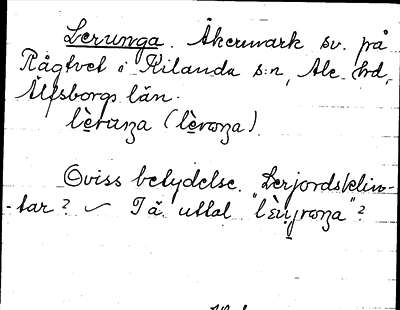 Lerunga. Åkermark sv. på
Rågtvet i Kilanda s:n, Ale hd,
Älfsborgs län.
Oviss betydelse. Lerjordsklin-
-tar? Tå uttal "